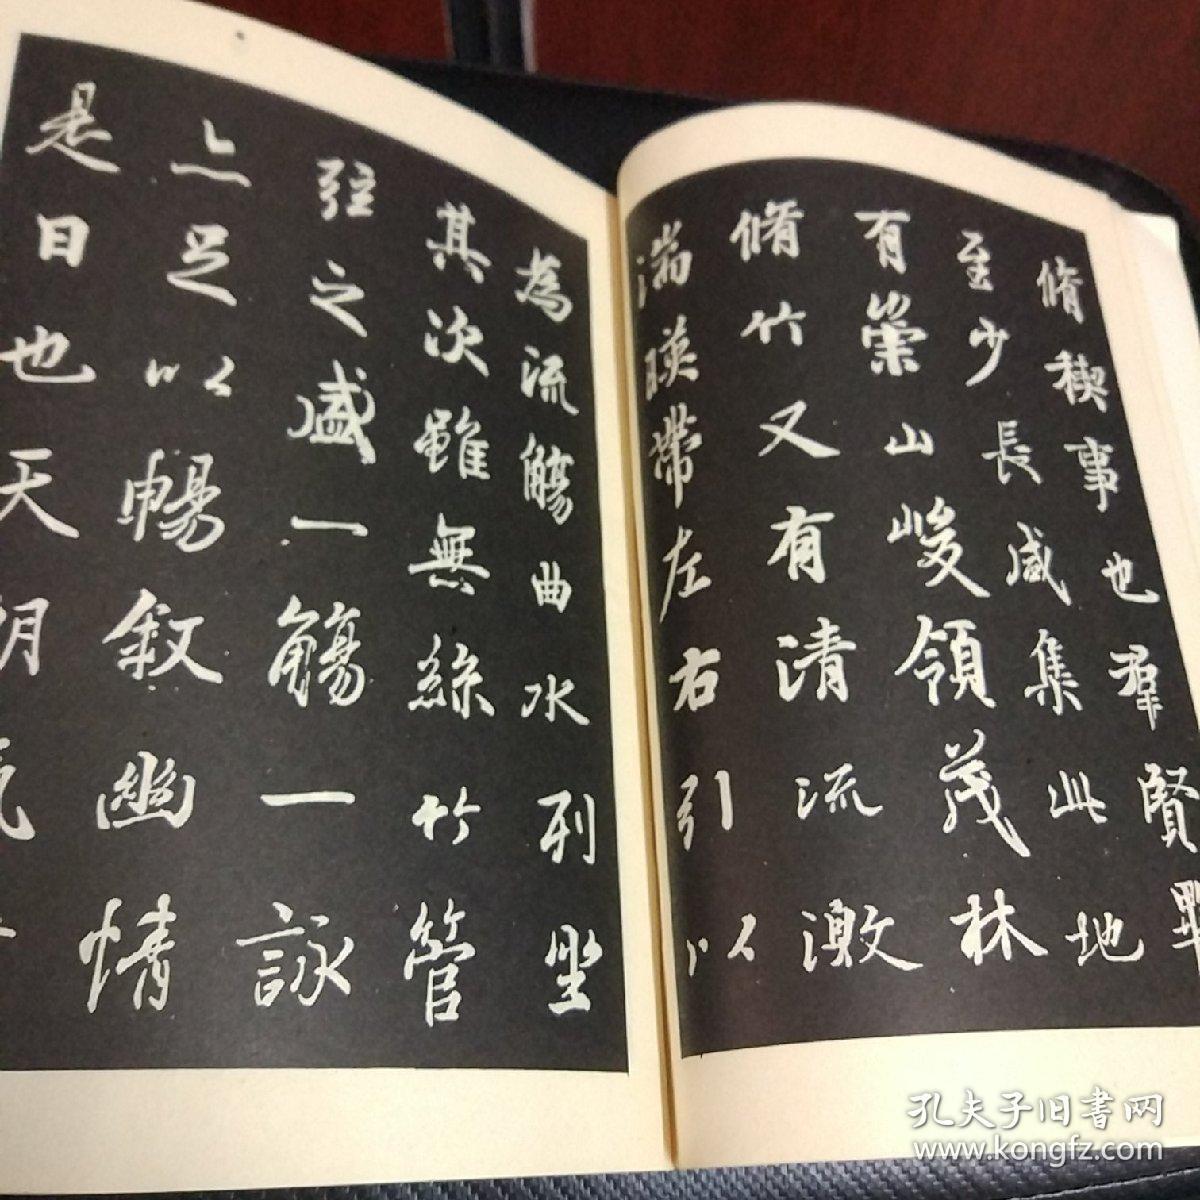 脩稧事也羣賢畢
至少長咸集此地
有崇山峻領茂林
脩竹又有清流激
湍暎帶左右引以
為流觴曲水列坐
其次雖無絲竹管
弦之盛一觴一詠
亦足以暢叙幽情
是日也天朗氣
孔夫子旧书网
www.kongfz.com